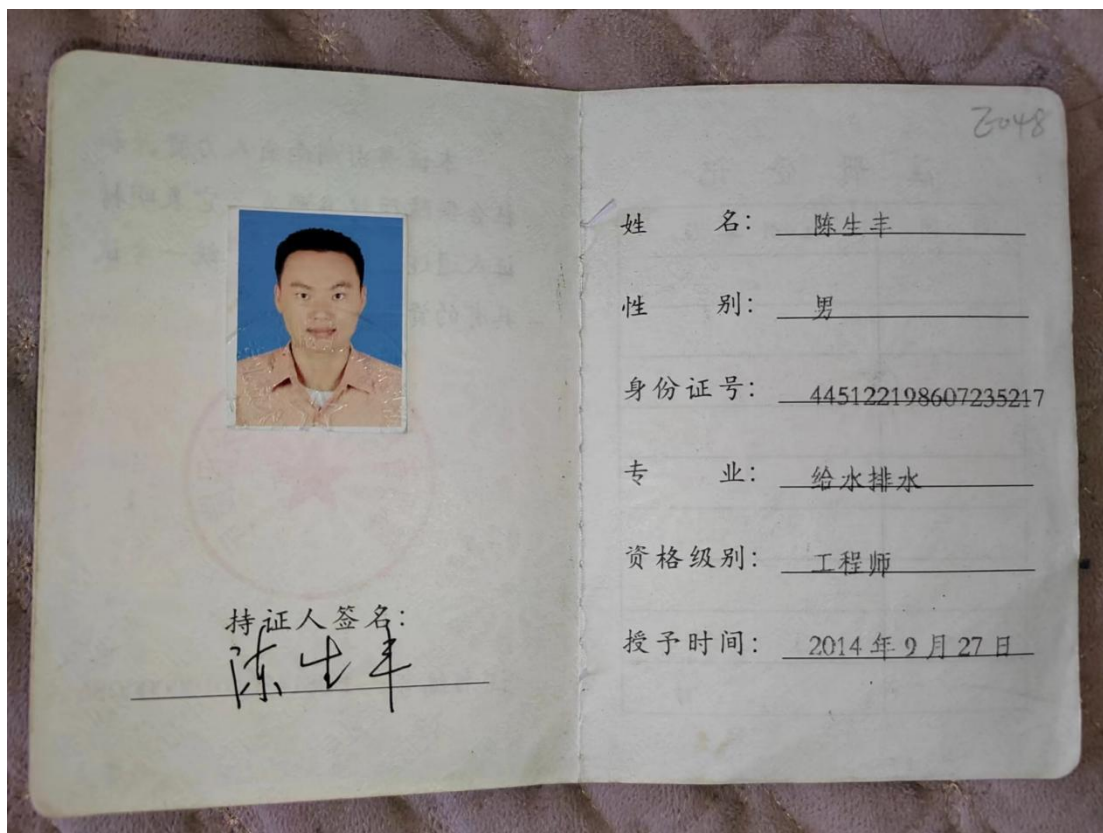 持证人签名:
陈生丰
E048
姓 名: 陈生丰
性 别: 男
身份证号: 445122198607235217
专 业: 给水排水
资格级别: 工程师
授予时间: 2014年9月27日